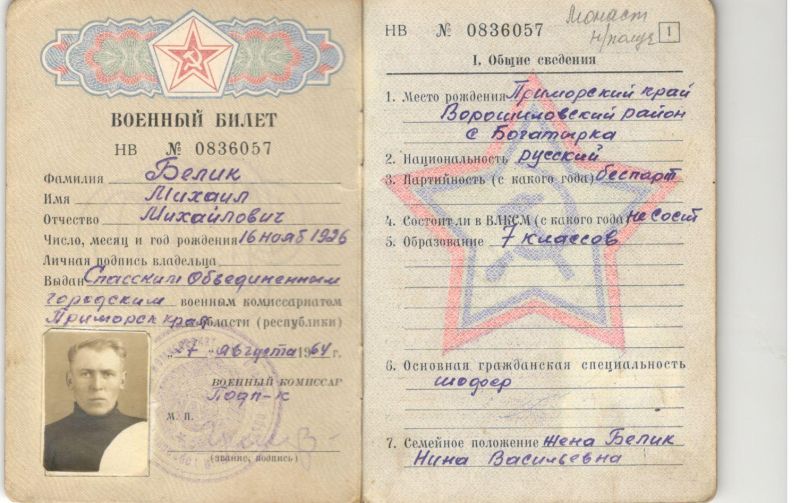 ВОЕННЫЙ БИЛЕТ
НВ № 0836057
Фамилия Белик
Имя Михаил
Отчество Михайлович
Число, месяц и год рождения 16 нояб 1926
Личная подпись владельца
Выдан Спасским Объединенным
городским военным комиссариатом
Приморск края области (республики)
"27" августа 1964 г.
ВОЕННЫЙ КОМИССАР
Подп-к
М. П.
(звание, подпись)
НВ № 0836057
1
I. Общие сведения
1. Место рождения Приморский край
Ворошиловский район
с Богатырка
2. Национальность русский
3. Партийность (с какого года) беспарт
4. Состоит ли в ВЛКСМ (с какого года) не сост
5. Образование 7 классов
6. Основная гражданская специальность
шофер
7. Семейное положение жена Белик
Нина Васильевна